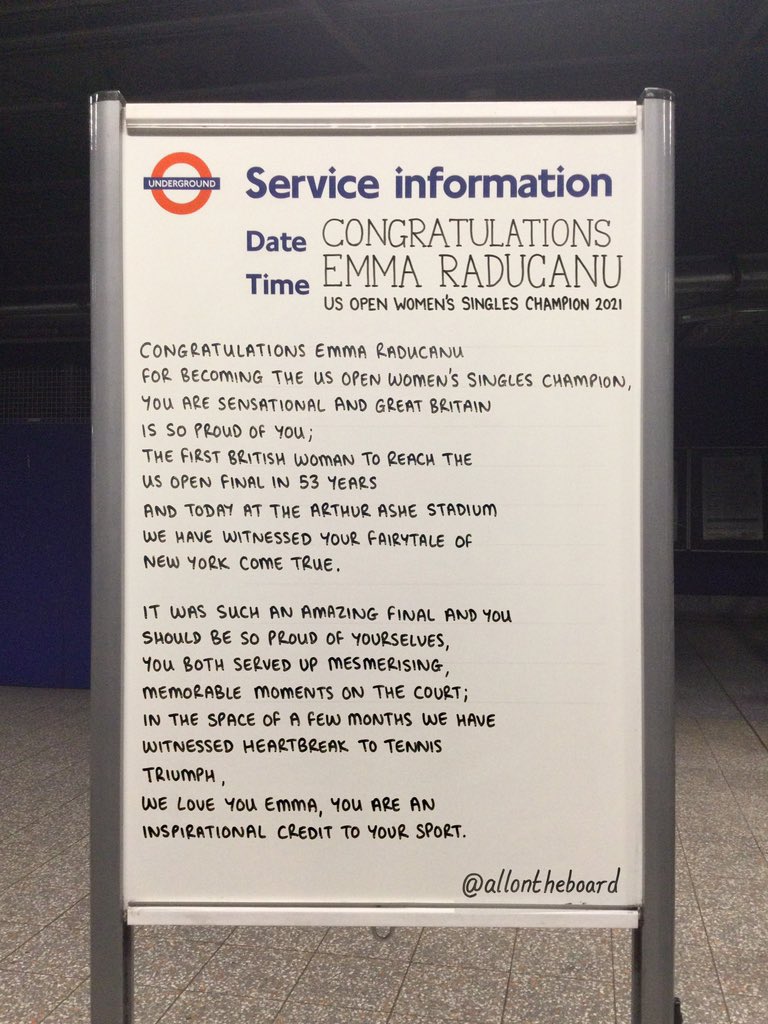 UNDERGROUND
Service information
Date CONGRATULATIONS
Time EMMA RADUCANU
US OPEN WOMEN'S SINGLES CHAMPION 2021
CONGRATULATIONS EMMA RADUCANU
FOR BECOMING THE US OPEN WOMEN'S SINGLES CHAMPION,
YOU ARE SENSATIONAL AND GREAT BRITAIN
IS SO PROUD OF YOU;
THE FIRST BRITISH WOMAN TO REACH THE
US OPEN FINAL IN 53 YEARS
AND TODAY AT THE ARTHUR ASHE STADIUM
WE HAVE WITNESSED YOUR FAIRYTALE OF
NEW YORK COME TRUE.
IT WAS SUCH AN AMAZING FINAL AND YOU
SHOULD BE SO PROUD OF YOURSELVES,
YOU BOTH SERVED UP MESMERISING,
MEMORABLE MOMENTS ON THE COURT;
IN THE SPACE OF A FEW MONTHS WE HAVE
WITNESSED HEARTBREAK TO TENNIS
TRIUMPH,
WE LOVE YOU EMMA, YOU ARE AN
INSPIRATIONAL CREDIT TO YOUR SPORT.
@allontheboard